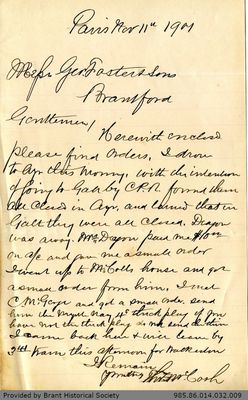 Paris Nov 11th 1901
Messrs Geo Foster & Sons
Brantford
Gentlemen/
Herewith enclosed
please find orders, I drove
to Ayr this morning, with the intention
of going to Galt by C.P.R. found them
all closed in Ayr, and learned that in
Galt they were all closed, Dixon
was away. Mrs Dixon paid me
on a/c and gave me a small order
I went up to McColls house and got
a small order from him, I met
C. McGaw and got a small order send
him the May 4th thick plug if you
have not the thick plug do not send
I came back here & will leave by
train this afternoon for
I Remain
Yours
McCosh
Provided by Brant Historical Society
985.86.014.032.009